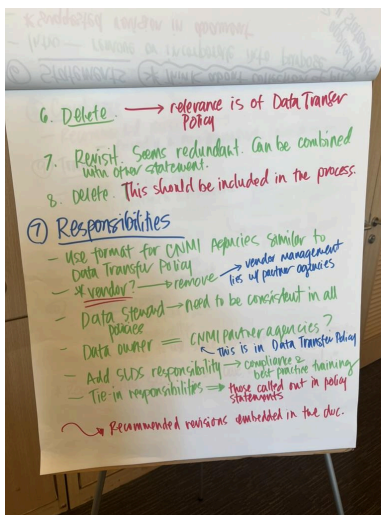 * suggested revision in document
6. Delete. → relevance is of Data Transer
Policy
7. Revisit. Seems redundant. Can be combined
with other statement.
8. Delete. This should be included in the process.
⑦ Responsibilities
- Use format for CNMI Agencies similar to
Data Transfer Policy
- * vendor? → remove → vendor management
lies w/ partner agencies
- Data Steward → need to be consistent in all
policies
Data owner = CNMI partner agencies?
↖ This is in Data Transfer Policy
- Add SLDS responsibility → compliance &
best practice training
- Tie-in responsibilities → those called out in policy
statements
→ Recommended revisions embedded in the doc.